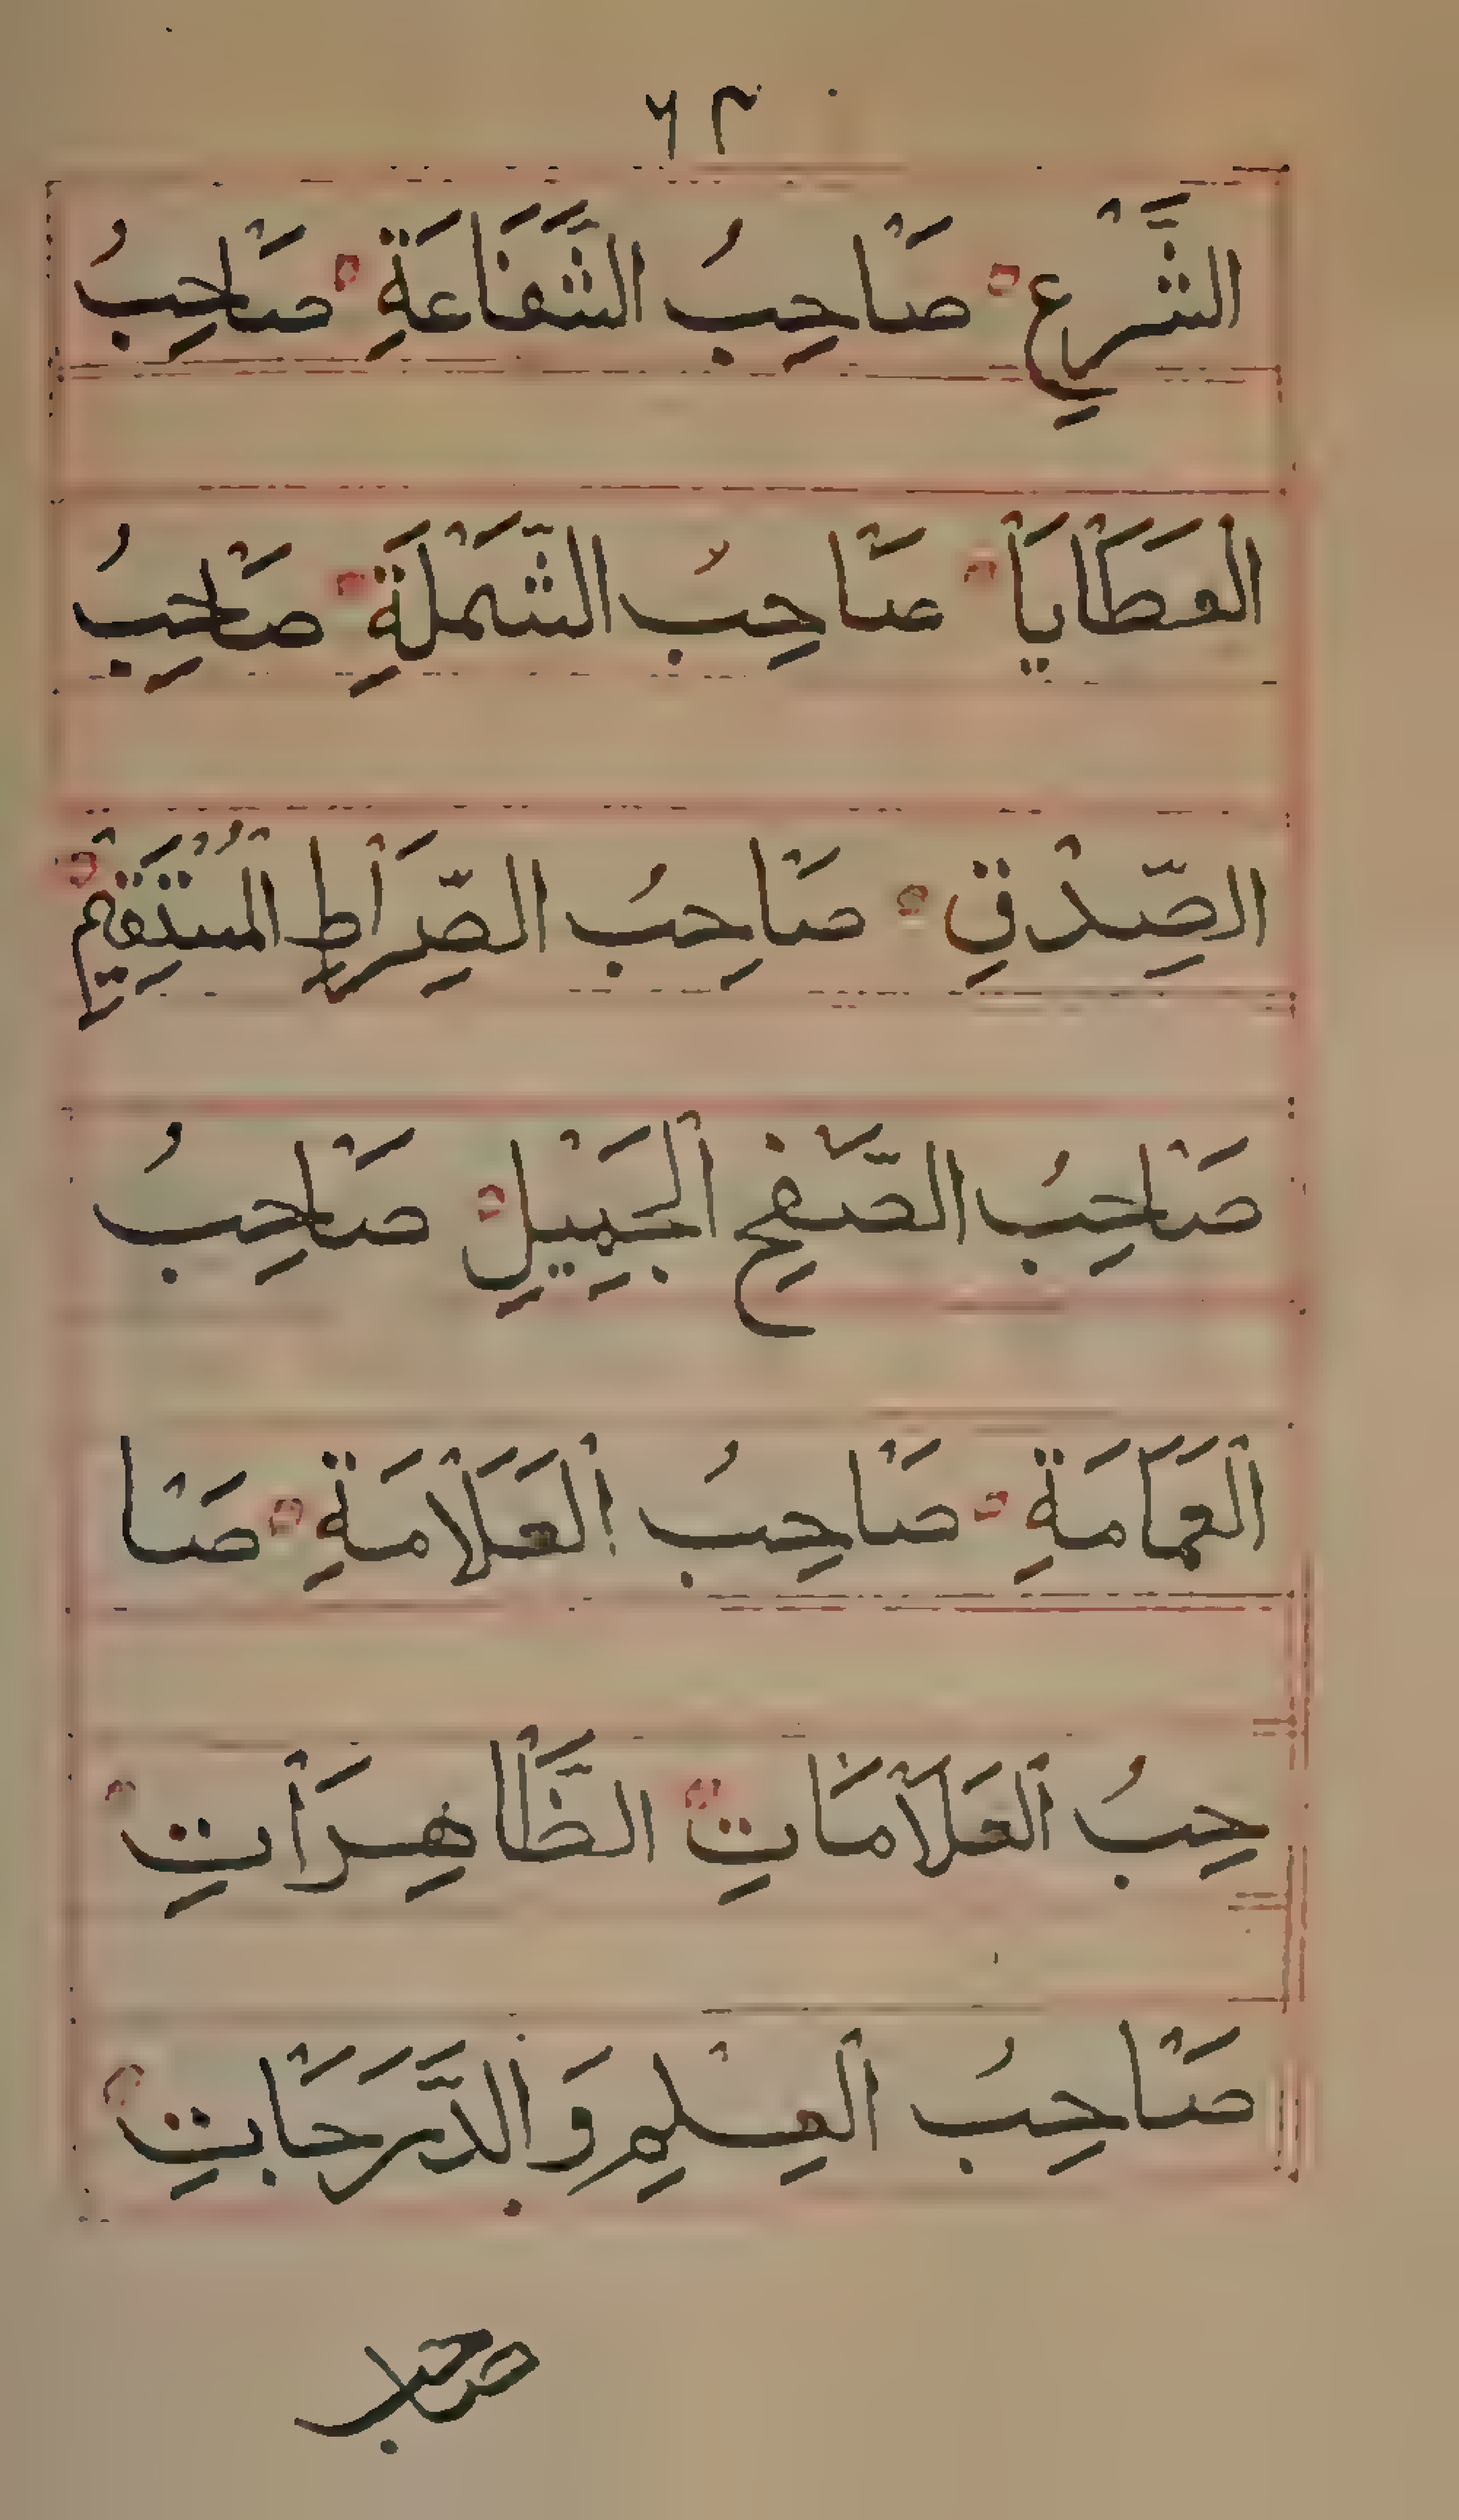 ٦٢
الشَّرْعِ صَاحِبُ الشَّفَاعَةِ صَاحِبُ
الْعَطَايَا صَاحِبُ الشَّمْلَةِ صَاحِبُ
الصِّدْقِ صَاحِبُ الصِّرَاطِ الْمُسْتَقِيمِ
صَاحِبُ الصَّفْحِ الْجَمِيْلِ صَاحِبُ
الْعَمَامَةِ صَاحِبُ الْعَلَامَةِ صَا
حِبُ الْعَلَامَاتِ الظَّاهِرَاتِ
صَاحِبُ الْعِلْمِ وَالدَّرَجَاتِ
صاحب